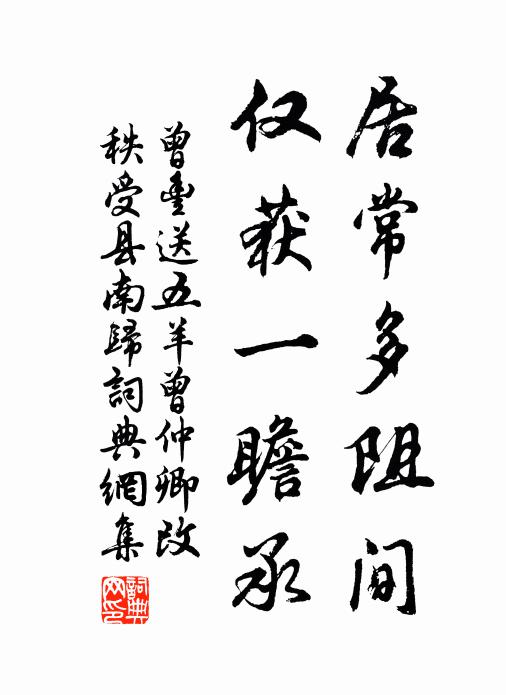 居常多阻间
仅获一瞻承
曾丰送五羊曾仲卿改
秩受县南歸詞典網集
詞典网印